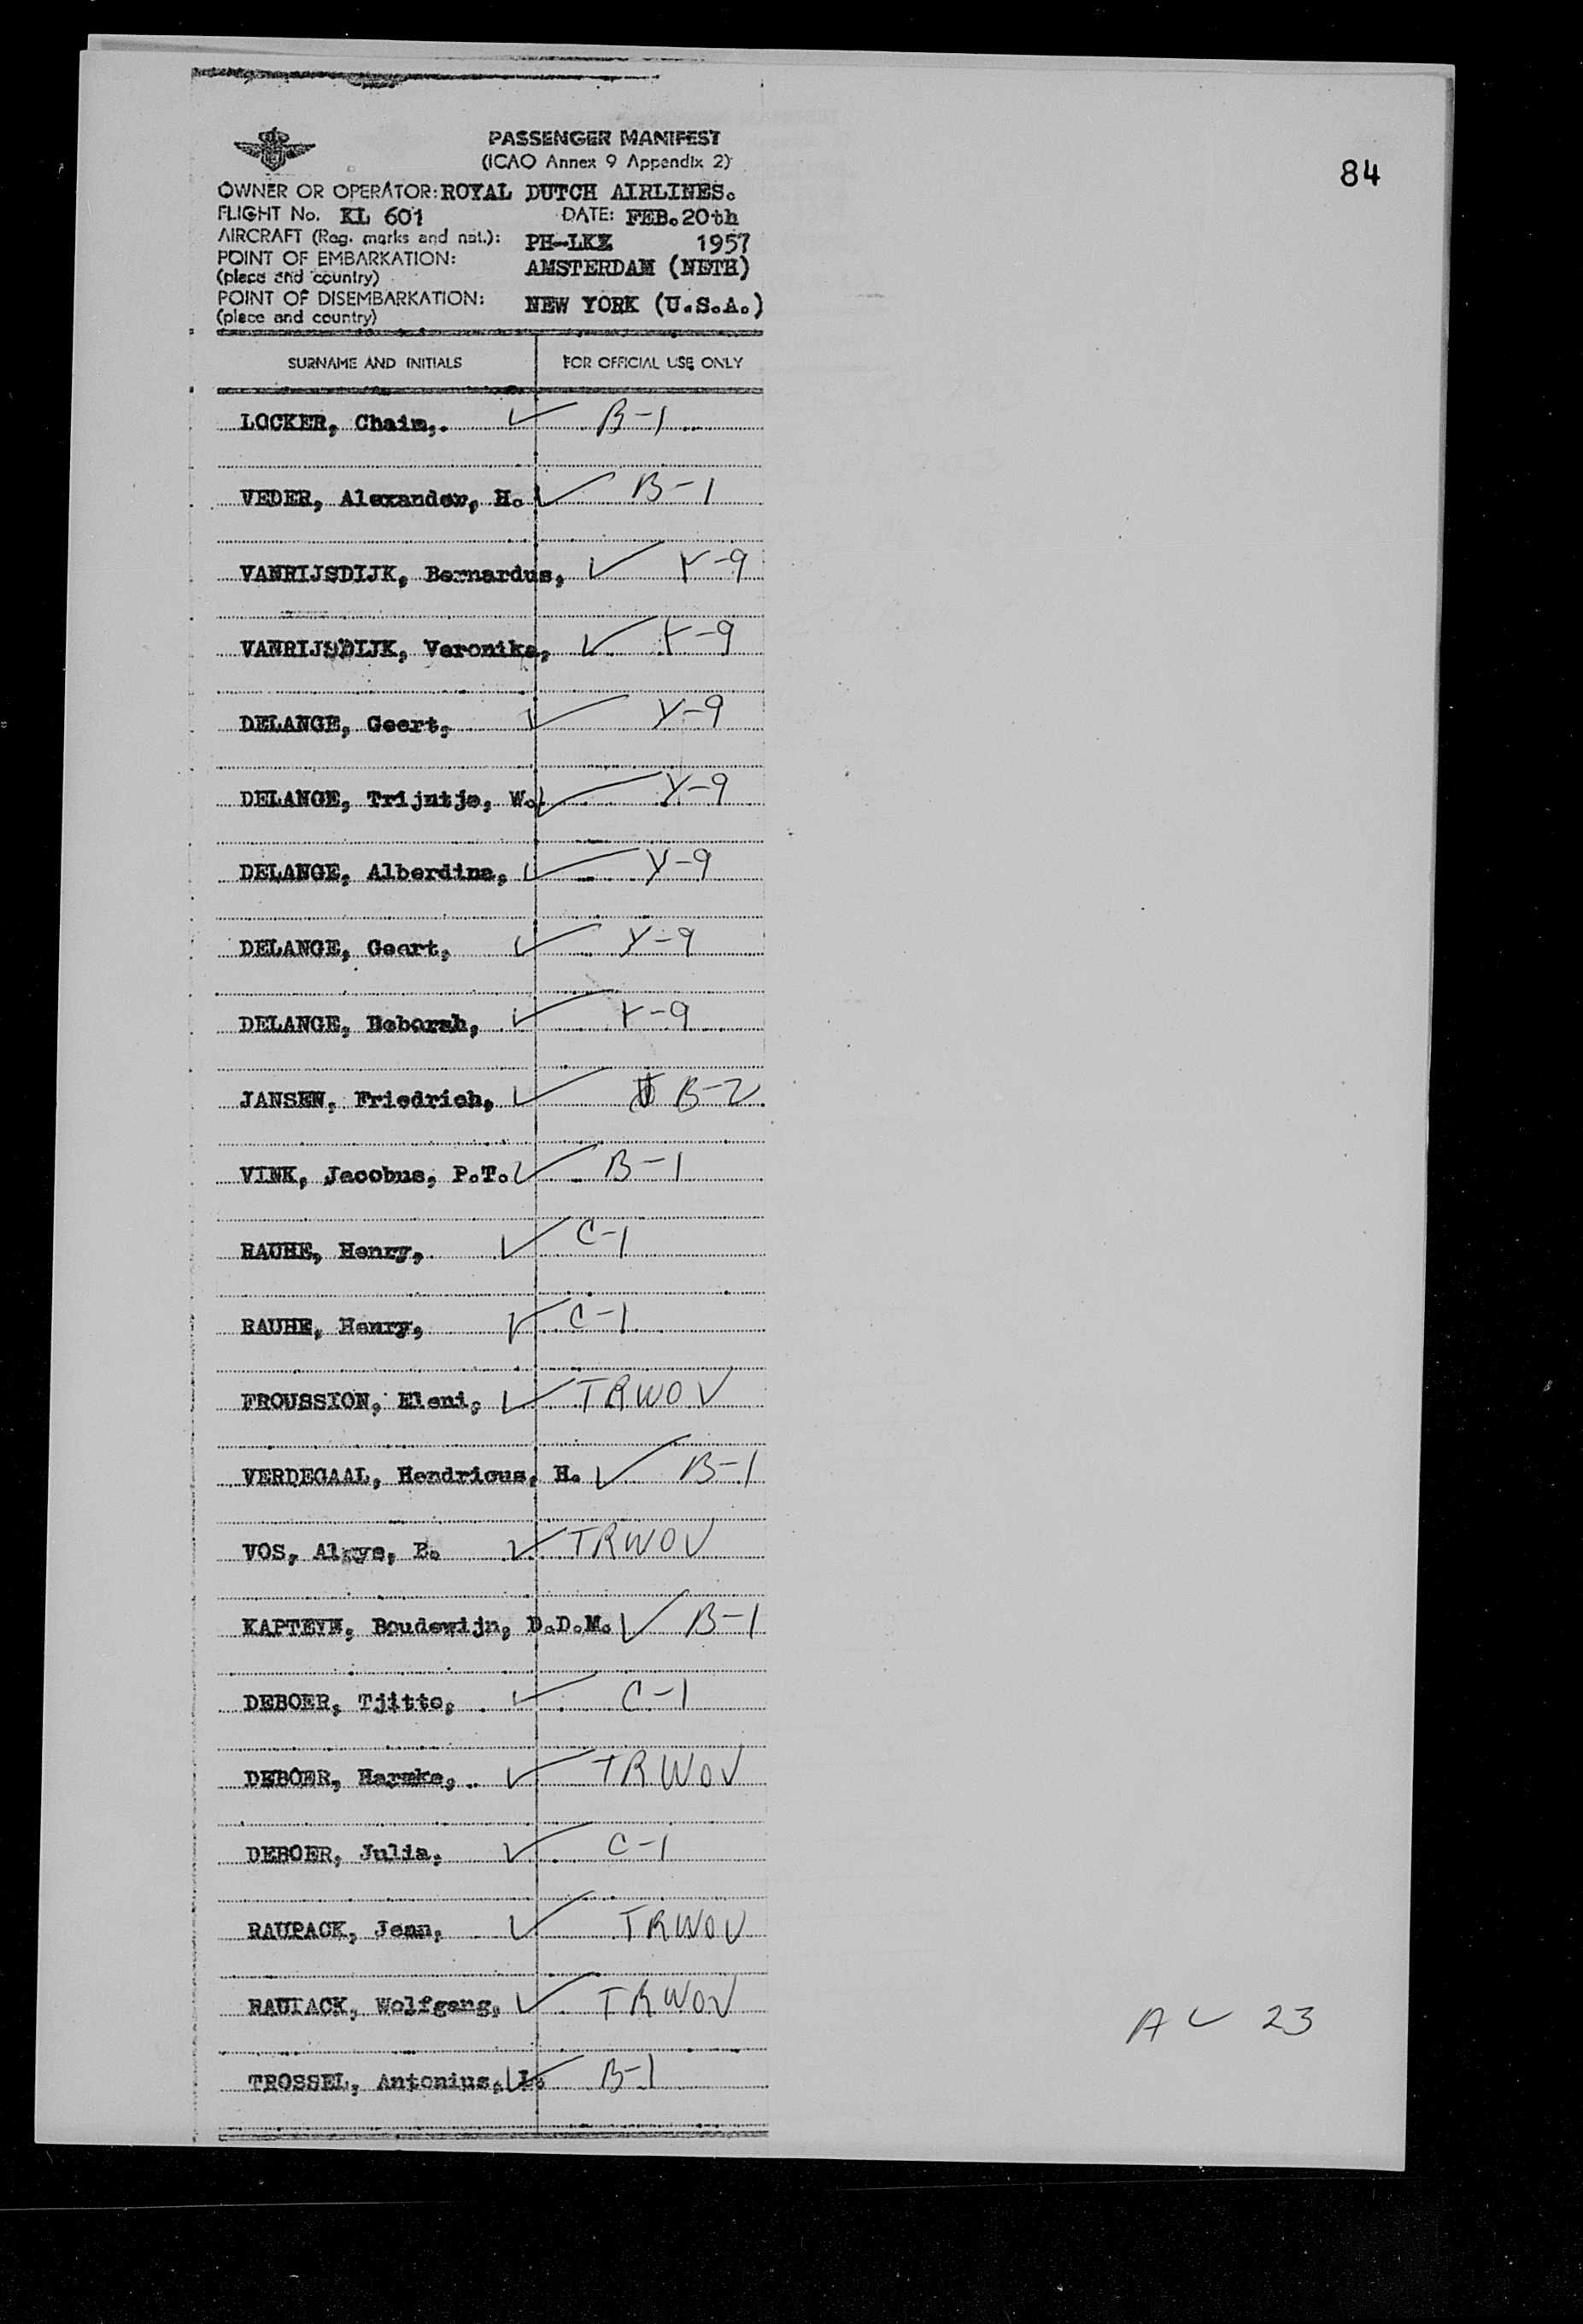 84
PASSENGER MANIFEST
(ICAO Annex 9 Appendix 2)
OWNER OR OPERATOR: ROYAL DUTCH AIRLINES.
FLIGHT No. KL 601 DATE: FEB. 20th
AIRCRAFT (Reg. marks and nat.): PH-LKZ 1957
POINT OF EMBARKATION: AMSTERDAM (NETH)
(place and country)
POINT OF DISEMBARKATION: NEW YORK (U.S.A.)
(place and country)
SURNAME AND INITIALS FOR OFFICIAL USE ONLY
LOCKER, Chaim,. ✓ B-1
VEDER, Alexander, H. ✓ B-1
VANRIJSDIJK, Bernardus, ✓ Y-9
VANRIJSDIJK, Veronika, ✓ Y-9
DELANGE, Geert, ✓ Y-9
DELANGE, Trijntje, W. ✓ Y-9
DELANGE, Alberdina, ✓ Y-9
DELANGE, Geert, ✓ Y-9
DELANGE, Deborah, ✓ Y-9
JANSEN, Friedrich, ✓ B-2
VINK, Jacobus, P.T. ✓ B-1
RAUHE, Henry, ✓ C-1
RAUHE, Henry, ✓ C-1
FROUSSION, Eleni, ✓ TRWOV
VERDEGAAL, Hendricus, H. ✓ B-1
VOS, E. ✓ TRWOV
KAPTEYN, Boudewijn, D.D.M. ✓ B-1
DEBOER, Tjitte, ✓ C-1
DEBOER, Harmke, ✓ TRWOV
DEBOER, Julia, ✓ C-1
RAUPACK, Jean, ✓ TRWOV
RAUPACK, Wolfgang, ✓ TRWOV
TROSSEL, Antonius, L. ✓ B-1
23